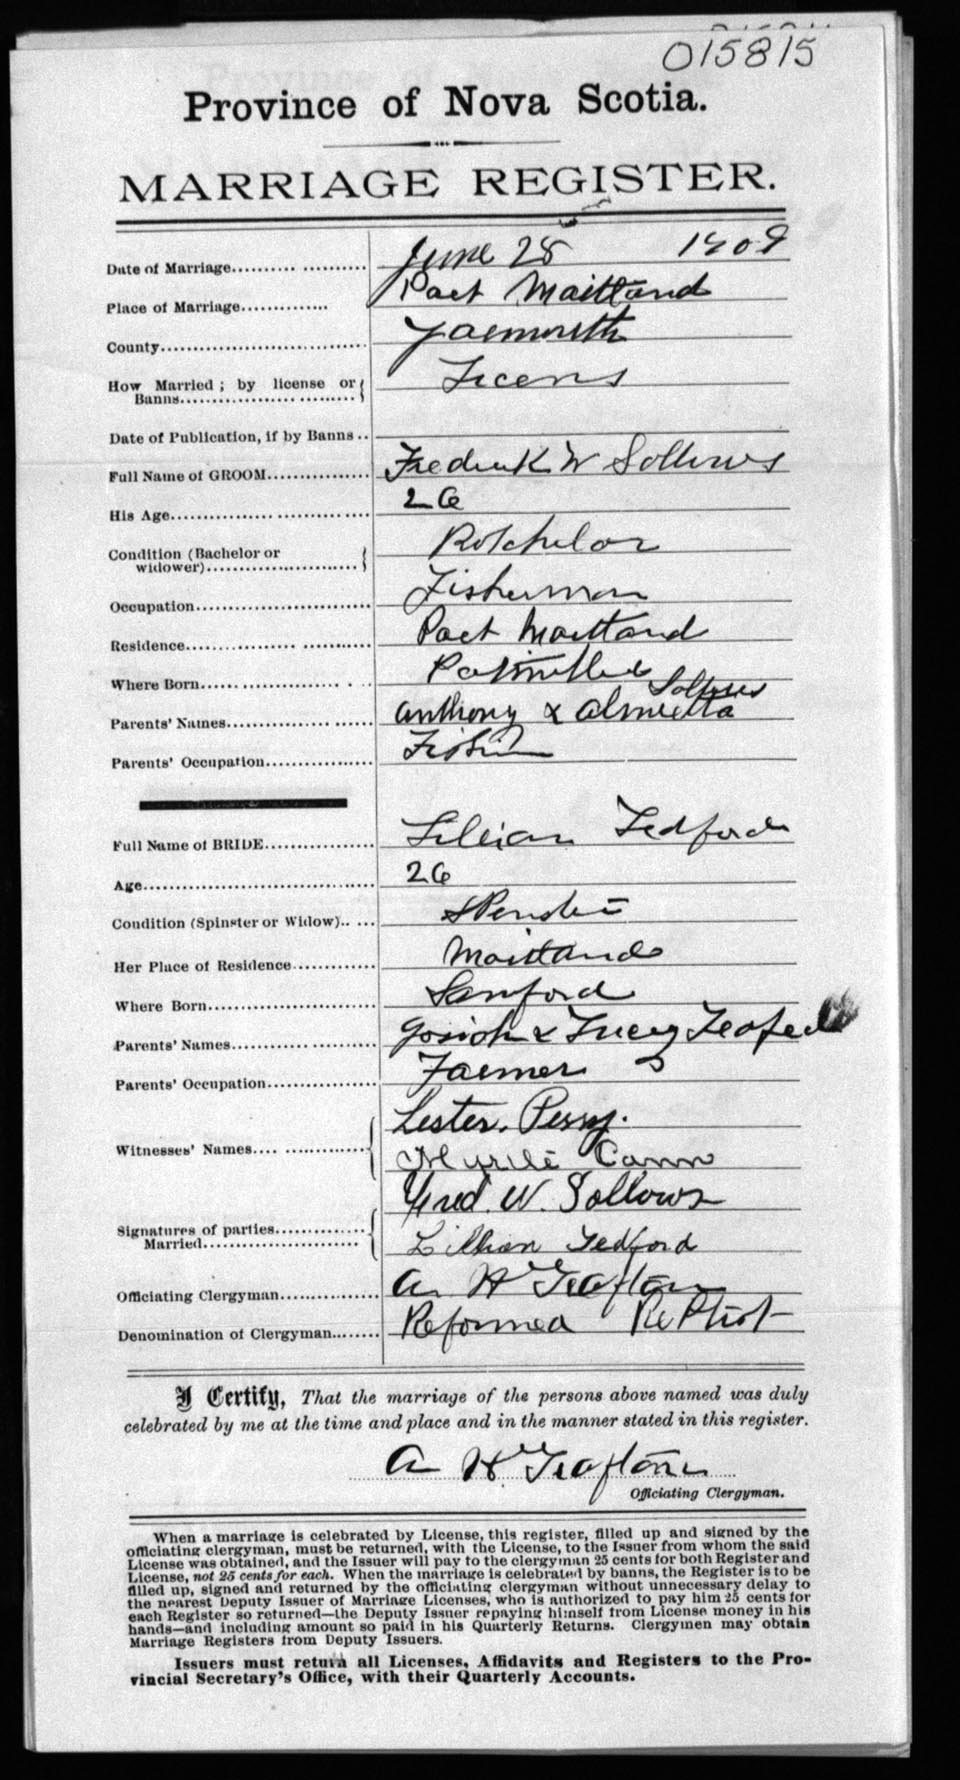 015815
Province of Nova Scotia.
MARRIAGE REGISTER.
Date of Marriage.................... June 28 1909
Place of Marriage............. Port Maitland
County.............................. Yarmouth
How Married; by license or
Banns.......................... Licens
Date of Publication, if by Banns ..
Full Name of GROOM............... Fredrick W Sollows
His Age............................. 26
Condition (Bachelor or
widower)......................... Botchelor
Occupation.......................... Fisherman
Residence........................... Port Maitland
Where Born....................
Sollows
Parents' Names..................... Anthony & Almetta
Parents' Occupation................
Full Name of BRIDE................ Lilian Tedford
Age................................. 26
Condition (Spinster or Widow).. ...
Her Place of Residence............ Maitland
Where Born........................ Sanford
Parents' Names..................... Josiah & Lucy
Parents' Occupation................ Farmer
Witnesses' Names.... ............. Lester. Perry.
Myrtle Cann
Signatures of parties............. Fred. W. Sollows
Married....................... Lillian Tedford
Officiating Clergyman............... A H
Denomination of Clergyman........ Reformed Baptist
I Certify, That the marriage of the persons above named was duly
celebrated by me at the time and place and in the manner stated in this register.
A H
Officiating Clergyman.
When a marriage is celebrated by License, this register, filled up and signed by the
officiating clergyman, must be returned, with the License, to the Issuer from whom the said
License was obtained, and the Issuer will pay to the clergyman 25 cents for both Register and
License, not 25 cents for each. When the marriage is celebrated by banns, the Register is to be
filled up, signed and returned by the officiating clergyman without unnecessary delay to
the nearest Deputy Issuer of Marriage Licenses, who is authorized to pay him 25 cents for
each Register so returned—the Deputy Issuer repaying himself from License money in his
hands—and including amount so paid in his Quarterly Returns. Clergymen may obtain
Marriage Registers from Deputy Issuers.
Issuers must return all Licenses, Affidavits and Registers to the Pro-
vincial Secretary's Office, with their Quarterly Accounts.